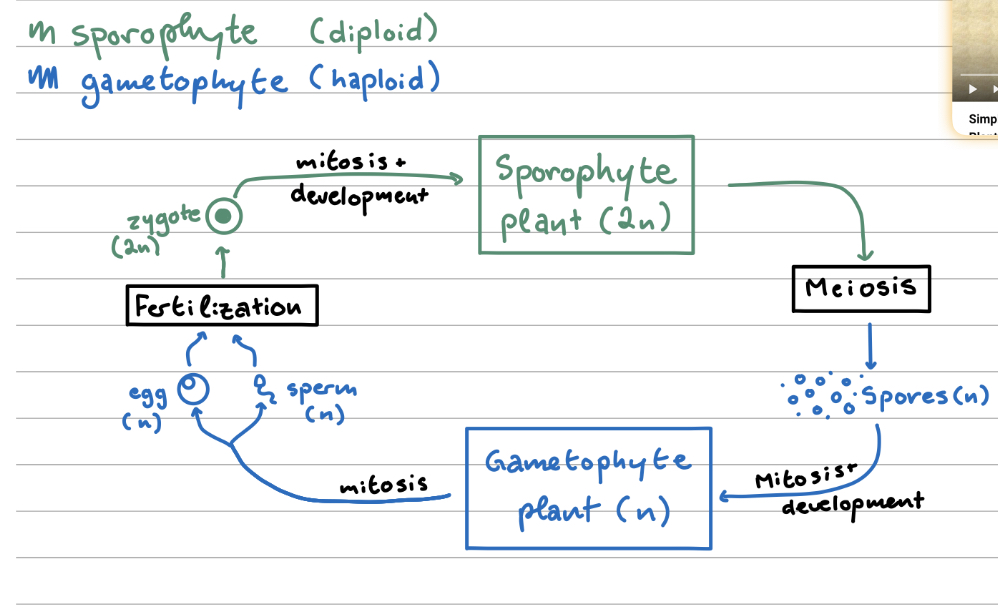 m sporophyte (diploid)
m gametophyte (haploid)
Simp
mitosis +
development
Sporophyte
plant (2n)
zygote
(2n)
Meiosis
Fertilization
egg
(n)
sperm
(n)
Spores (n)
Gametophyte
plant (n)
mitosis
Mitosis+
development